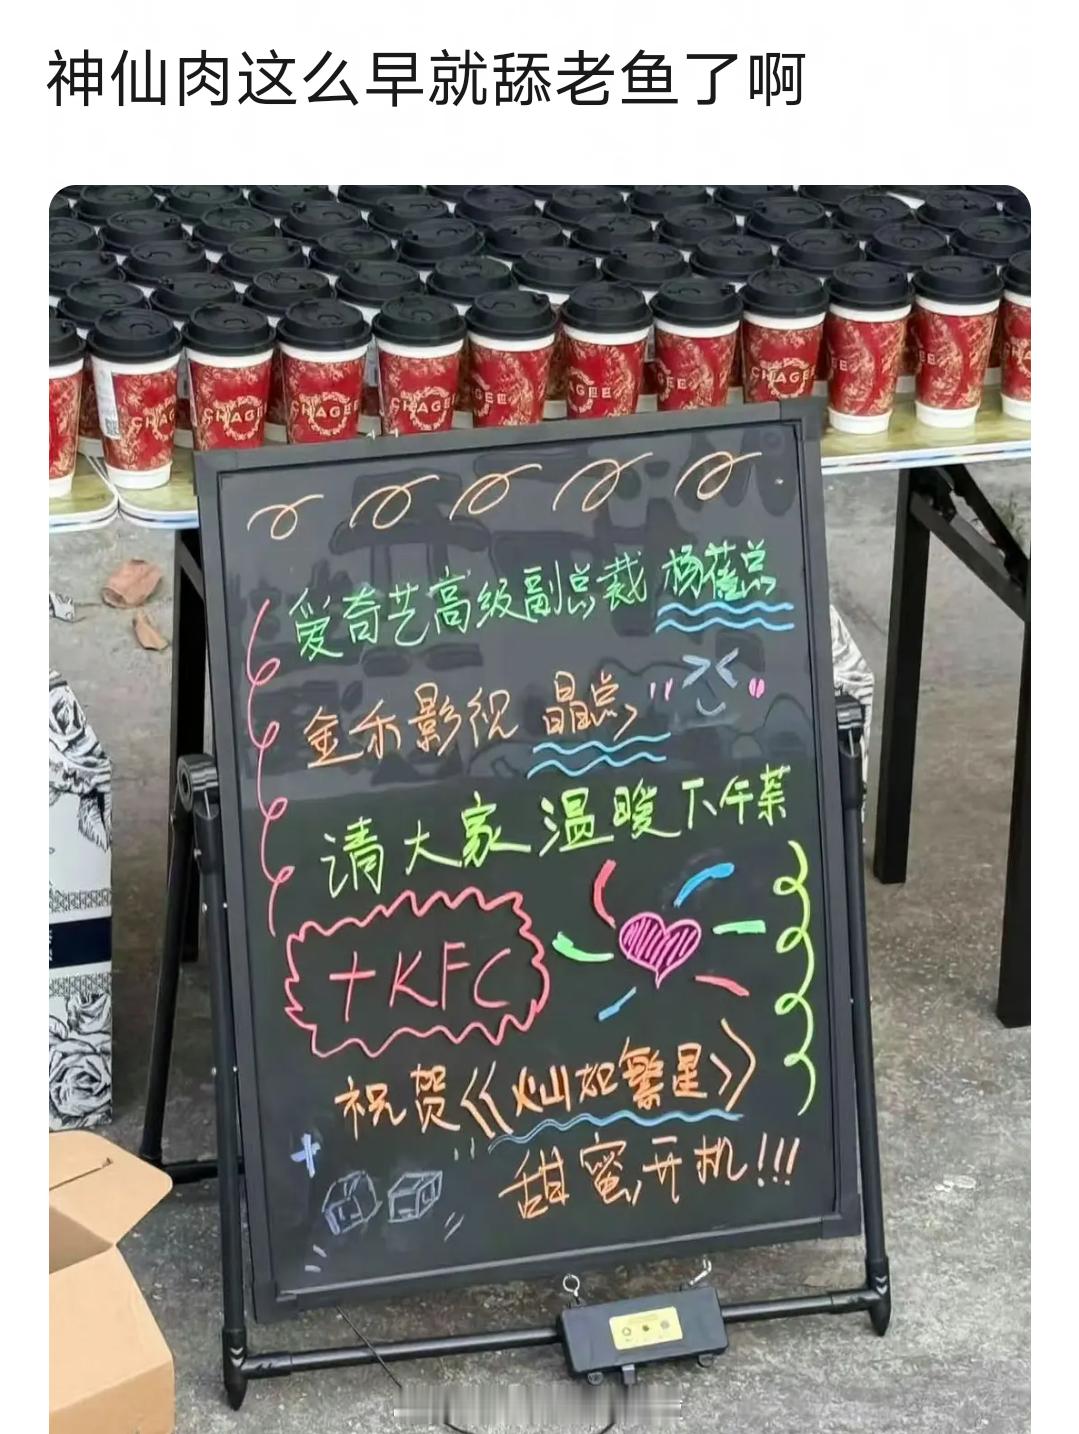 神仙肉这么早就舔老鱼了啊
CHAGEE
CHAGEE
CHAGEE
CHAGEE
爱奇艺高级副总裁 杨蓓总
金禾影视 晶总
请大家温暖下午茶
+KFC
祝贺《灿如繁星》
甜蜜开机!!!